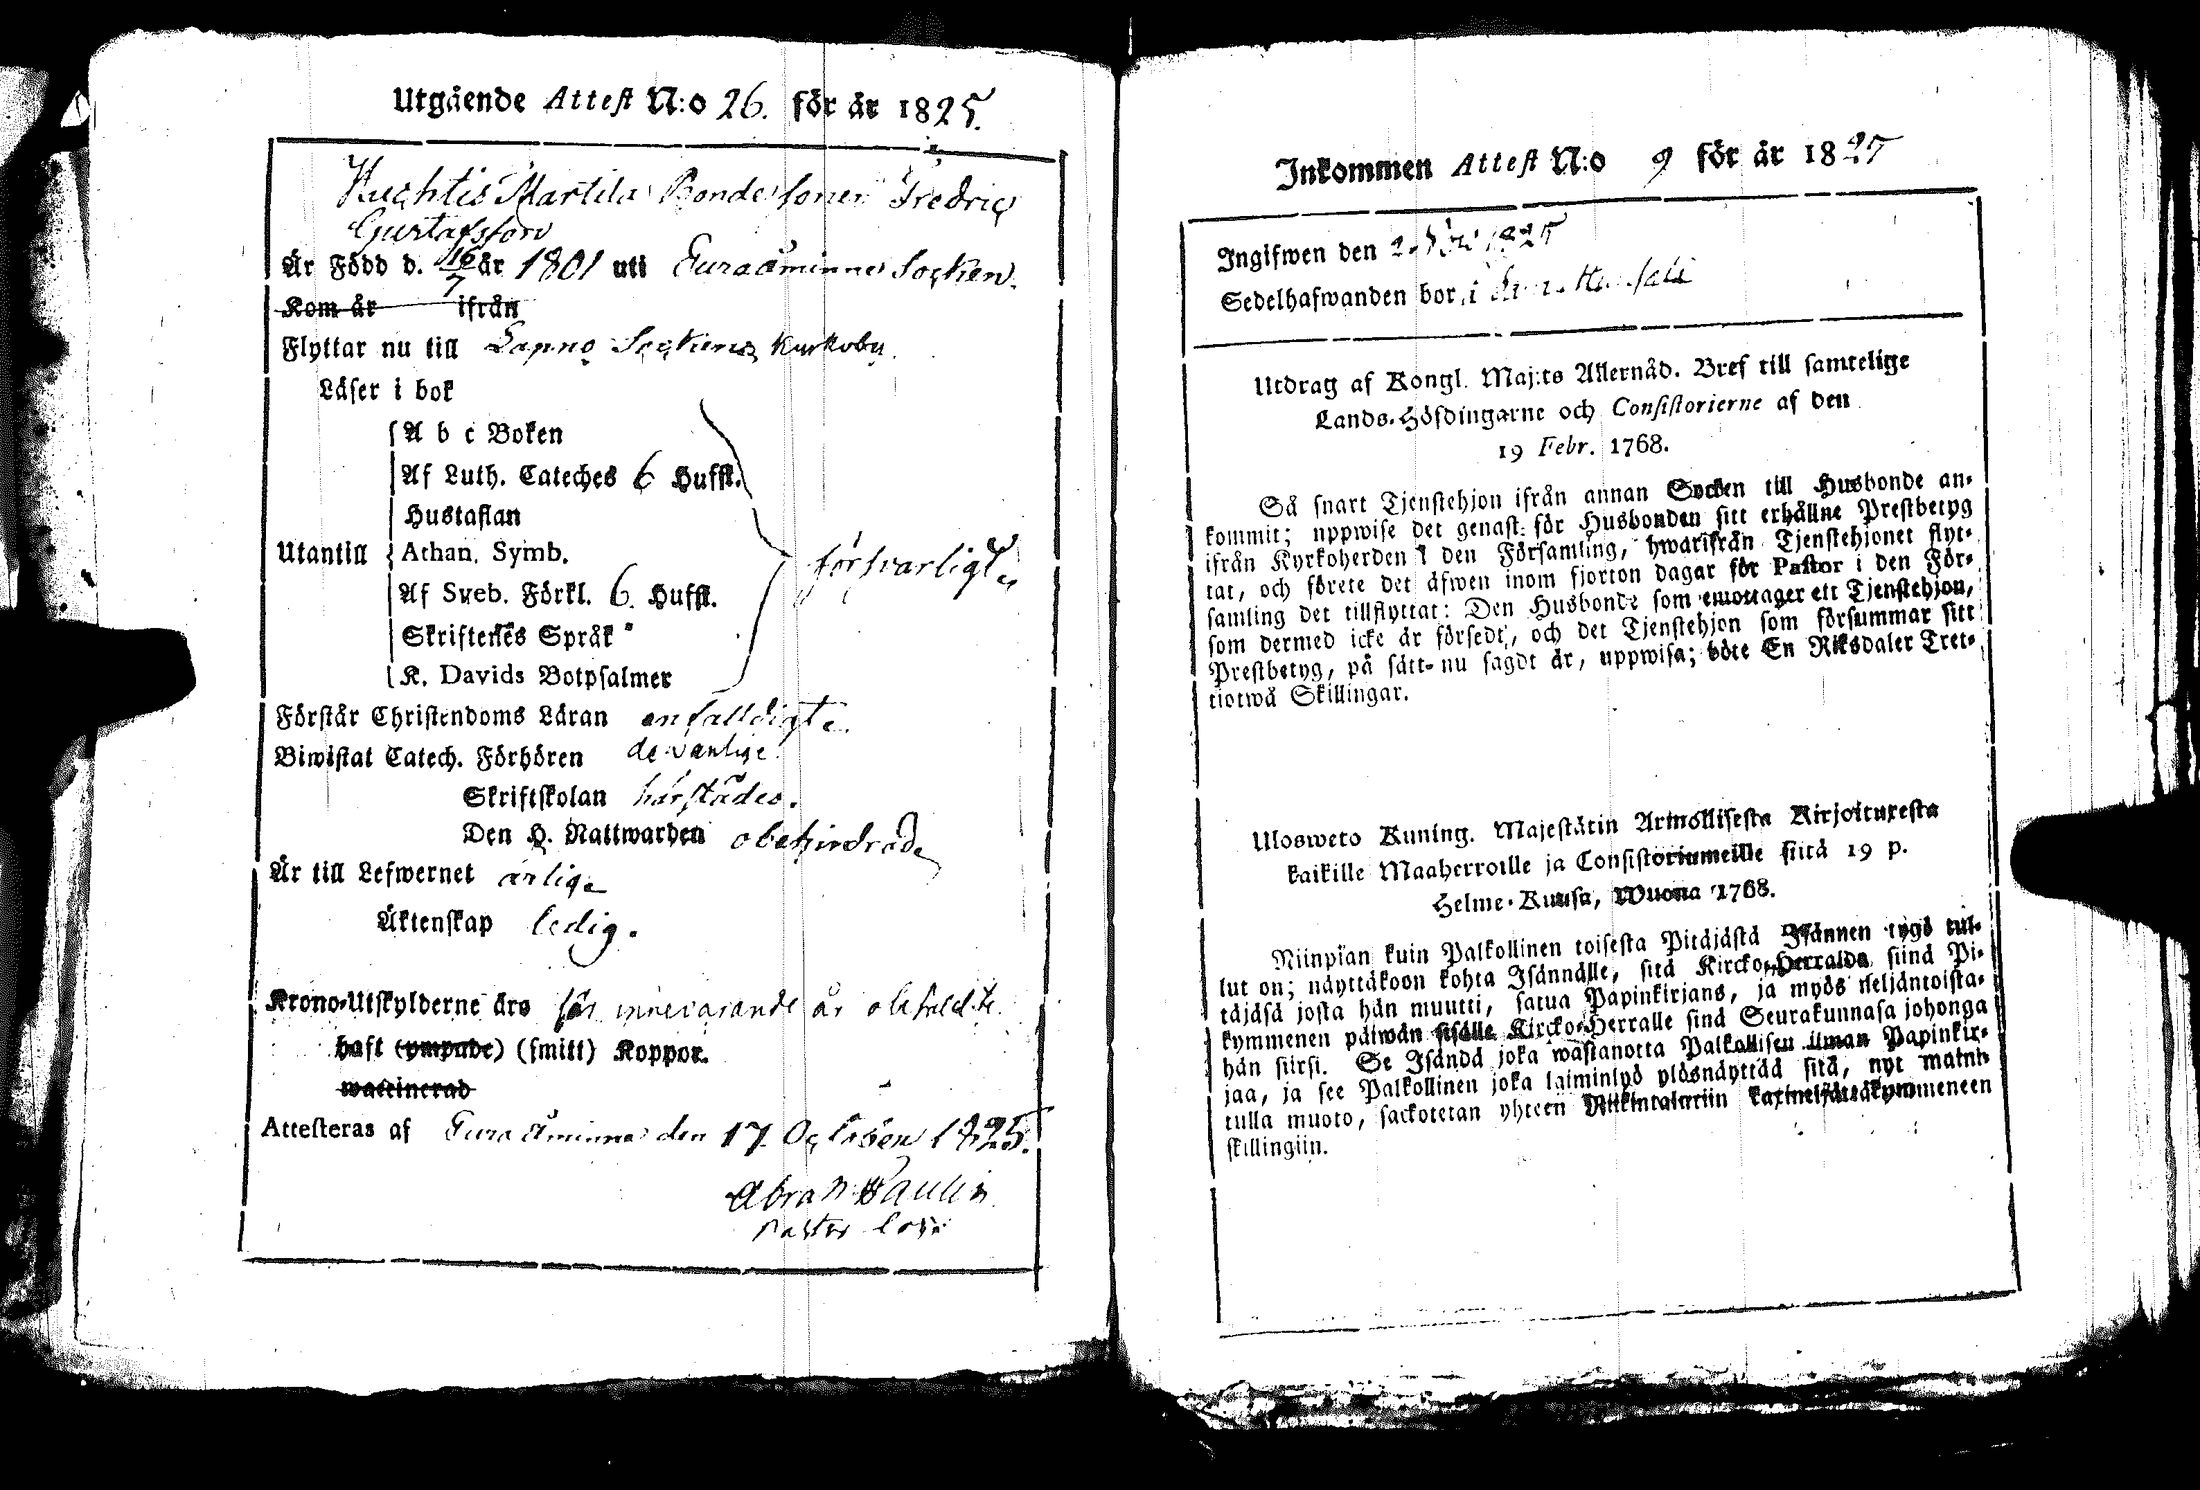 Utgående Attest N:o 26. för år 1825.
Huchtis Martila Bonde sonen Fredric
Gustafsson
Är Född d. 16/7 år 1801 uti Euraåminne Socken.
Kom år ifrån
Flyttar nu till Lappo Sockens Kyrkoby
Läser i bok
A b c Boken
Af Luth. Cateches 6 Hufst.
Hustaflan
Utantill Athan. Symb.
Af Sveb. Förkl. 6 Hufst.
försvarligt
Skriftenes Språk
K. Davids Botpsalmer
Förstår Christendoms Läran enfaldigt
Biwistat Catech. Förhören de vanlige
Skriftskolan härstädes.
Den H. Nattwarden obehindrad
Är till Lefwernet ärlig
Äktenskap ledig.
Krono-Utskylderne äro för innevarande år obetaldte
haft (ympade) (smitt) Koppor.
waccinerad
Attesteras af Euraåminne den 17 October 1825.
Abrah Paulin
Pastor
Inkommen Attest N:o 9 för år 1827
Ingifwen den 1825
Sedelhafwanden bor i
Utdrag af Kongl. Maj:ts Allernåd. Bref till samtelige
Lands-Höfdingarne och Consistorierne af den
19 Febr. 1768.
Så snart Tjenstehjon ifrån annan Socken till Husbonde an-
kommit; uppwise det genast för Husbonden sitt erhållne Prestbetyg
ifrån Kyrkoherden i den Församling, hwarifrån Tjenstehjonet flyt-
tat, och förete det äfwen inom fjorton dagar för Pastor i den För-
samling det tillflyttat: Den Husbonde som emottager ett Tjenstehjon,
som dermed icke är försedt, och det Tjenstehjon som försummar sitt
Prestbetyg, på sätt nu sagdt är, uppwisa; böte En Riksdaler Tret-
tiotwå Skillingar.
Ulosweto Kuning. Majestätin Armollisesta Kirjoituxesta
kaikille Maaherroille ja Consistoriumeille siitä 19 p.
Helme-Kuusa, Wuona 1768.
Niinpian kuin Palkollinen toisesta Pitäjästä Isännen tygö tul-
lut on; näyttäkoon kohta Isännälle, sitä Kircko-Herralda siinä Pi-
täjäsä josta hän muutti, satua Papinkirjans, ja myös neljäntoista-
kymmenen päiwän sisälle Kircko-Herralle sinä Seurakunnasa johonga
hän siirsi. Se Isändä joka wastanotta Palkollisen ilman Papinkir-
jaa, ja see Palkollinen joka laiminlyö ylösnäyttää sitä, nyt mainit-
tulla muoto, sackotetan yhteen Riikintalariin kaxineljättäkymmeneen
skillingiin.